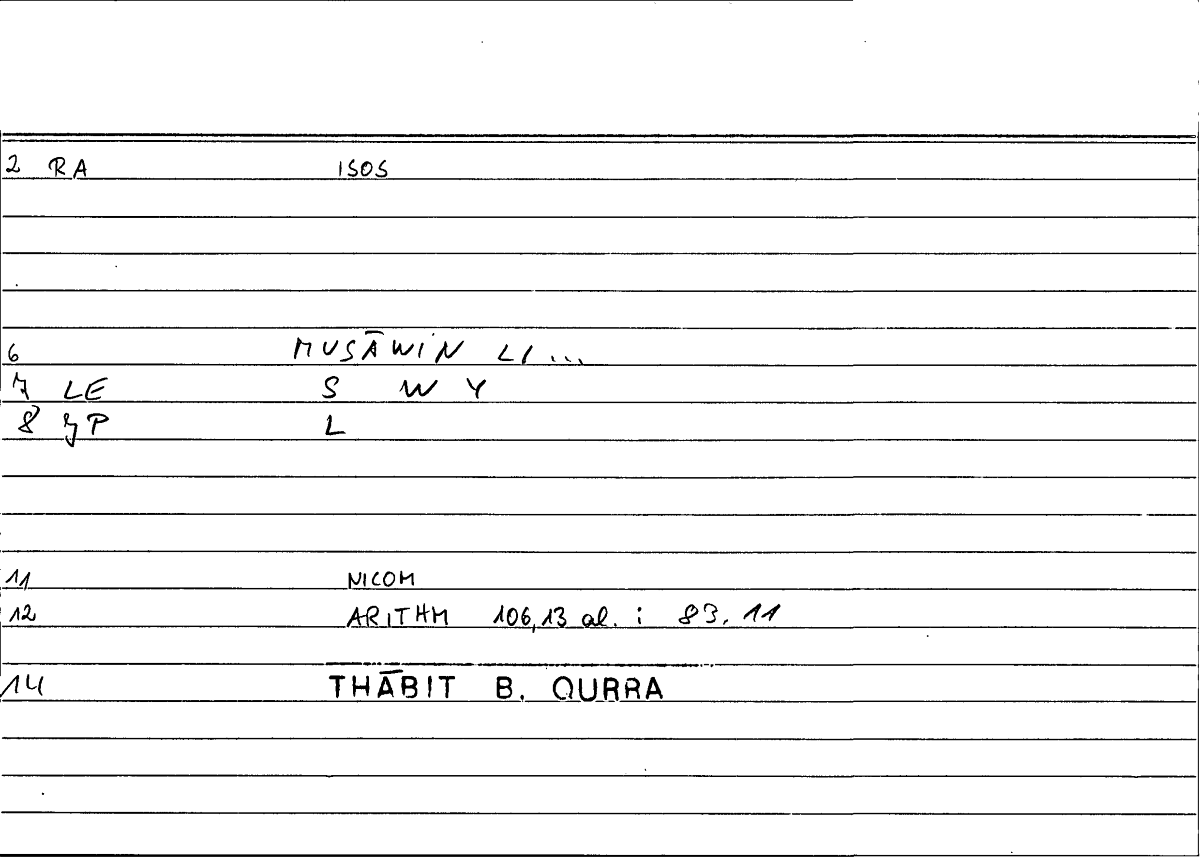 2 RA ISOS
6 MUSĀWIN LI ...
7 LE S W Y
8 JP L
11 NICOM
12 ARITHM 106,13 al. : 83.11
14 THĀBIT B. QURRA